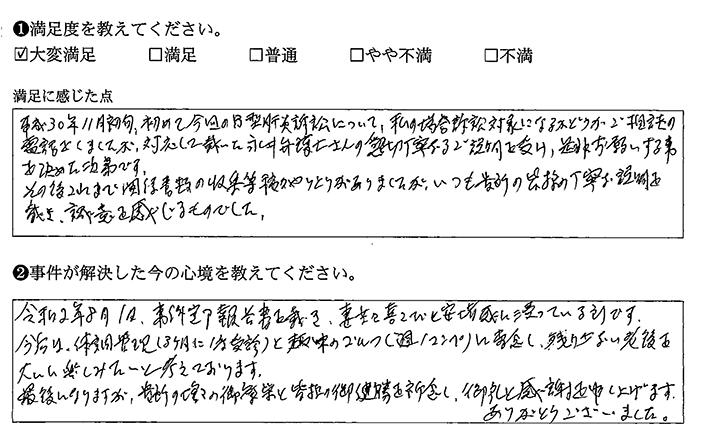 ❶満足度を教えてください。
☑大変満足 □満足 □普通 □やや不満 □不満
満足に感じた点
平成30年11月初旬、初めて今回のB型肝炎訴訟について、私の場合訴訟対象になるかどうかご相談の
電話をしましたが、対応して頂いた弁護士さんの懇切丁寧なるご説明を受け、是非お願いする事
を決めた次第です。
その後これまで関係書類の収集等種々やりとりがありましたが、いつも貴所の皆様の丁寧な説明を
戴き、誠意を感じるものでした。
❷事件が解決した今の心境を教えてください。
令和2年8月1日、事件完了報告書を戴き、妻共々喜びと安堵感に浸っている処です。
今后は、体調管理(3ケ月に1度受診)と趣味のゴルフ(週1コンペ)に専念し、残り少ない老後を
大いに楽しみたいと考えております。
最後になりますが、貴所の増々の御繁栄と皆様の御健勝を祈念し、御礼と感謝を申し上げます。
ありがとうございました。